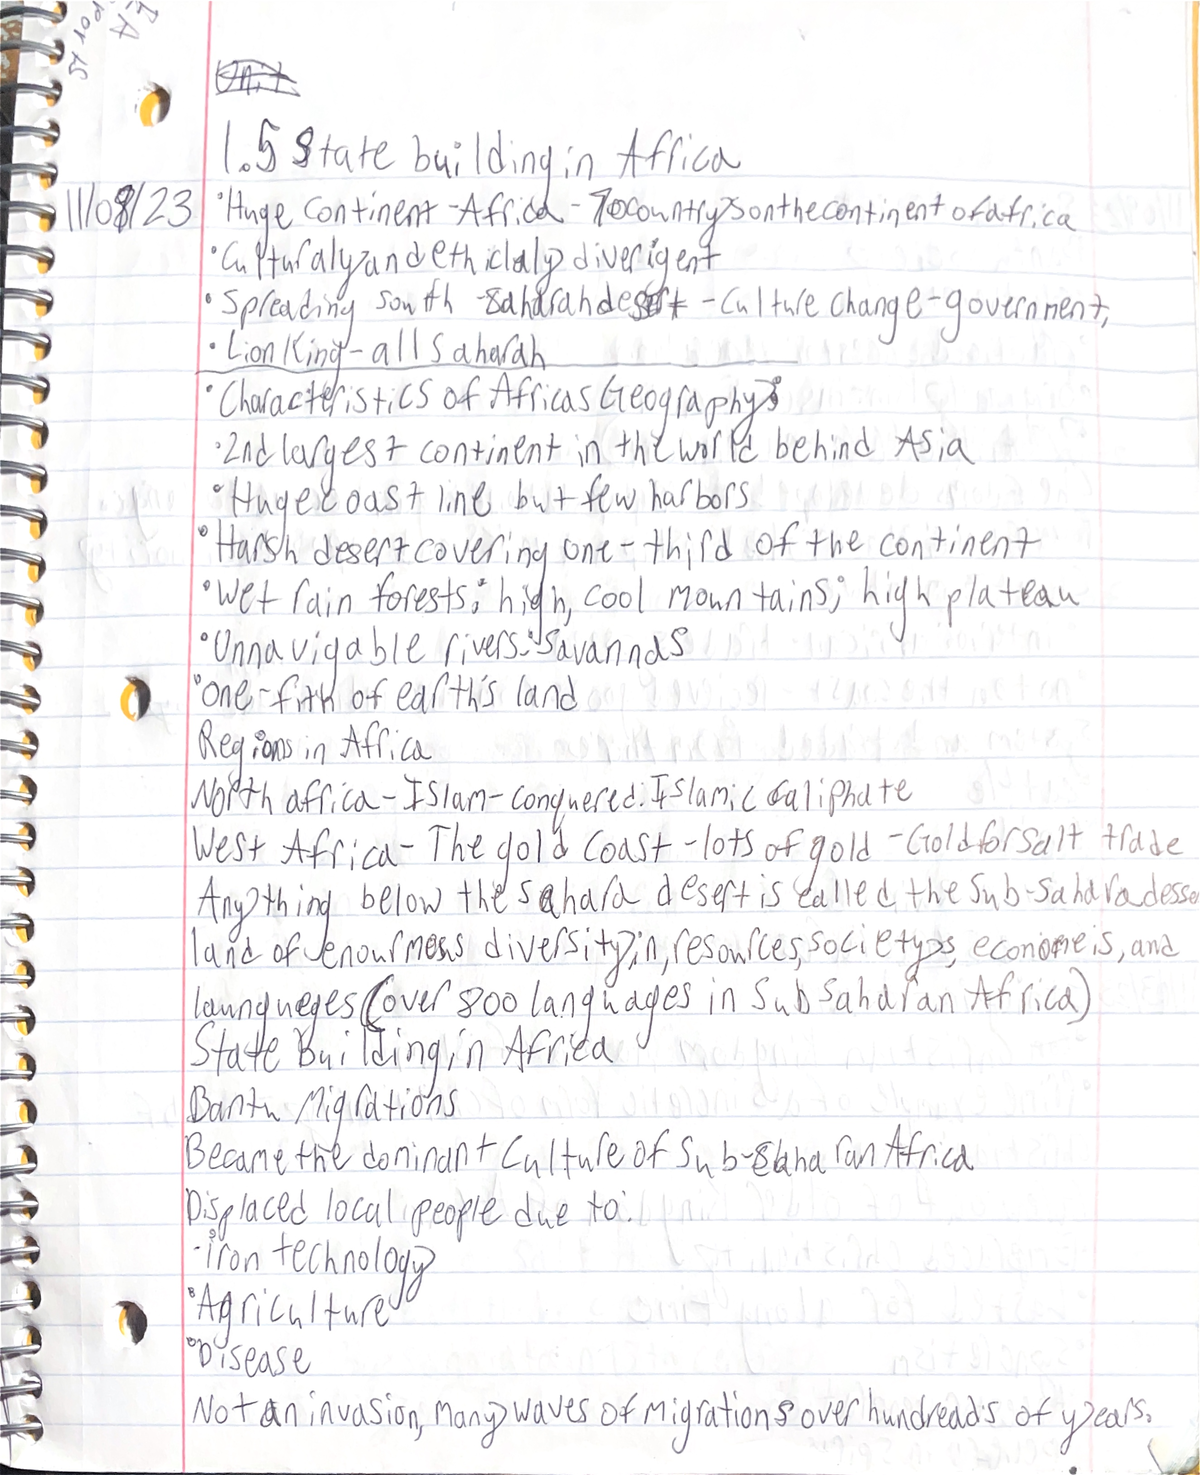 1.5 State building in Africa
11/08/23 •Huge Continent -Africa - 70 countrys on the continent of africa
•Culturaly and ethiclaly diverigent
•Spreading south -saharah desert -Culture change-government,
•Lion King-all Saharah
•Characteristics of Africas Geography:
•2nd largest continent in the world behind Asia
•Huge coast line but few harbors
•Harsh desert covering one-third of the continent
•Wet rain forests; high, cool mountains; high plateau
•Unnavigable rivers: Savannas
•One-fith of earth's land
Regions in Africa
North africa-Islam-conquered: Islamic caliphate
West Africa- The gold Coast -lots of gold -Gold for salt trade
Anything below the sahara desert is called the Sub-Sahara desse
land of enourmous diversity, in, resources, societys, economeis, and
laungueges (over 800 languages in Sub Saharan Africa)
State Building in Africa
Bantu Migrations
Became the dominant Culture of Sub-Saharan Africa
Displaced local people due to:
•iron technology
•Agriculture
•Disease
Not an invasion, many waves of migrations over hundread's of years.